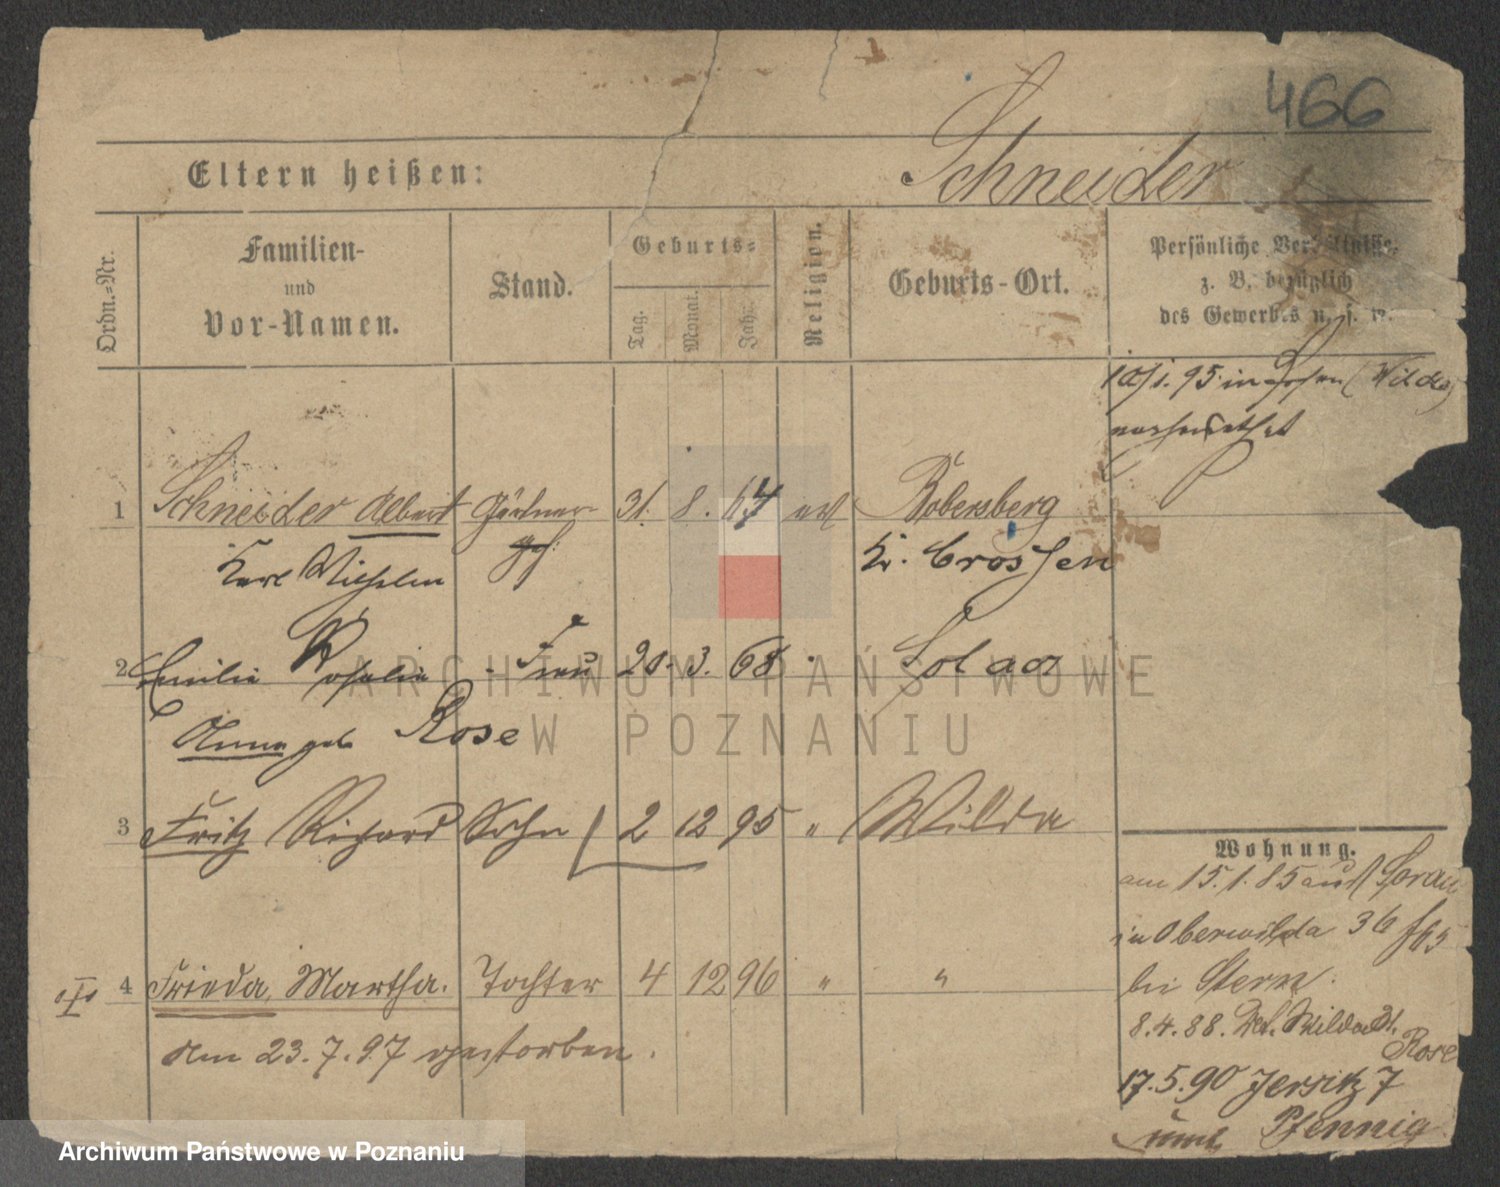 466
Eltern heißen:
Schneider
Ordn.=Nr.
Familien-
und
Vor-Namen.
Stand.
Geburts=
Tag.
Monat.
Jahr.
Religion.
Geburts-Ort.
Persönliche Verhältnisse,
z. B. bezüglich
des Gewerbes u. s. w.
10/1. 95 in Posen (Wilda)
verheirathet
1 Schneider Albert Gärtner- 31. 8. 67 ev Bobersberg
Karl Wilhelm geh: Kr. Crossen
2 Emilie Rosalie Frau 3. 68 "
Anna geb Rose
3 Fritz Richard Sohn 2 12 95 " Wilda
4 Frieda Martha. Tochter 4 12 96 " "
am 23.7.97 gestorben.
Wohnung.
am 15.1.85 aus Sorau
in Oberwilda 36
bei Stern.
8.4.88. Wilda
Rose
17.5.90 Jersitz 7
Pfennig
ARCHIWUM PAŃSTWOWE
W POZNANIU
Archiwum Państwowe w Poznaniu